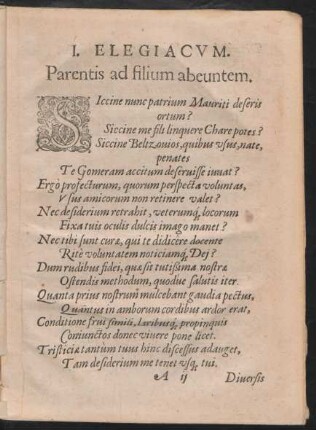 I. ELEGIACVM.
Parentis ad filium abeuntem.
SIccine nunc patrium Mauriti deseris
ortum?
Siccine me fili linquere Chare potes?
Siccine Belizouios, quibus vsus, nate,
penates
Te Gomeram accitum deseruisse iuuat?
Ergò profecturum, quorum perspecta voluntas,
Vsus amicorum non retinere valet?
Nec desiderium retrahit, veterumq́, locorum
Fixa tuis oculis dulcis imago manet?
Nec tibi sunt curæ, qui te didicere docente
Ritè voluntatem noticiamq́, Dei?
Dum rudibus fidei, quæ sit tutissima nostræ
Ostendis methodum, quodue salutis iter.
Quanta prius nostrum mulcebant gaudia pectus,
Quantus in amborum cordibus ardor erat,
Conditione frui simili, laribusq́, propinquis
Coniunctos donec viuere pone licet.
Tristiciæ tantum tuus hinc discessus adauget,
Tam desiderium me tenet vsq́, tui.
A ij Diuersis